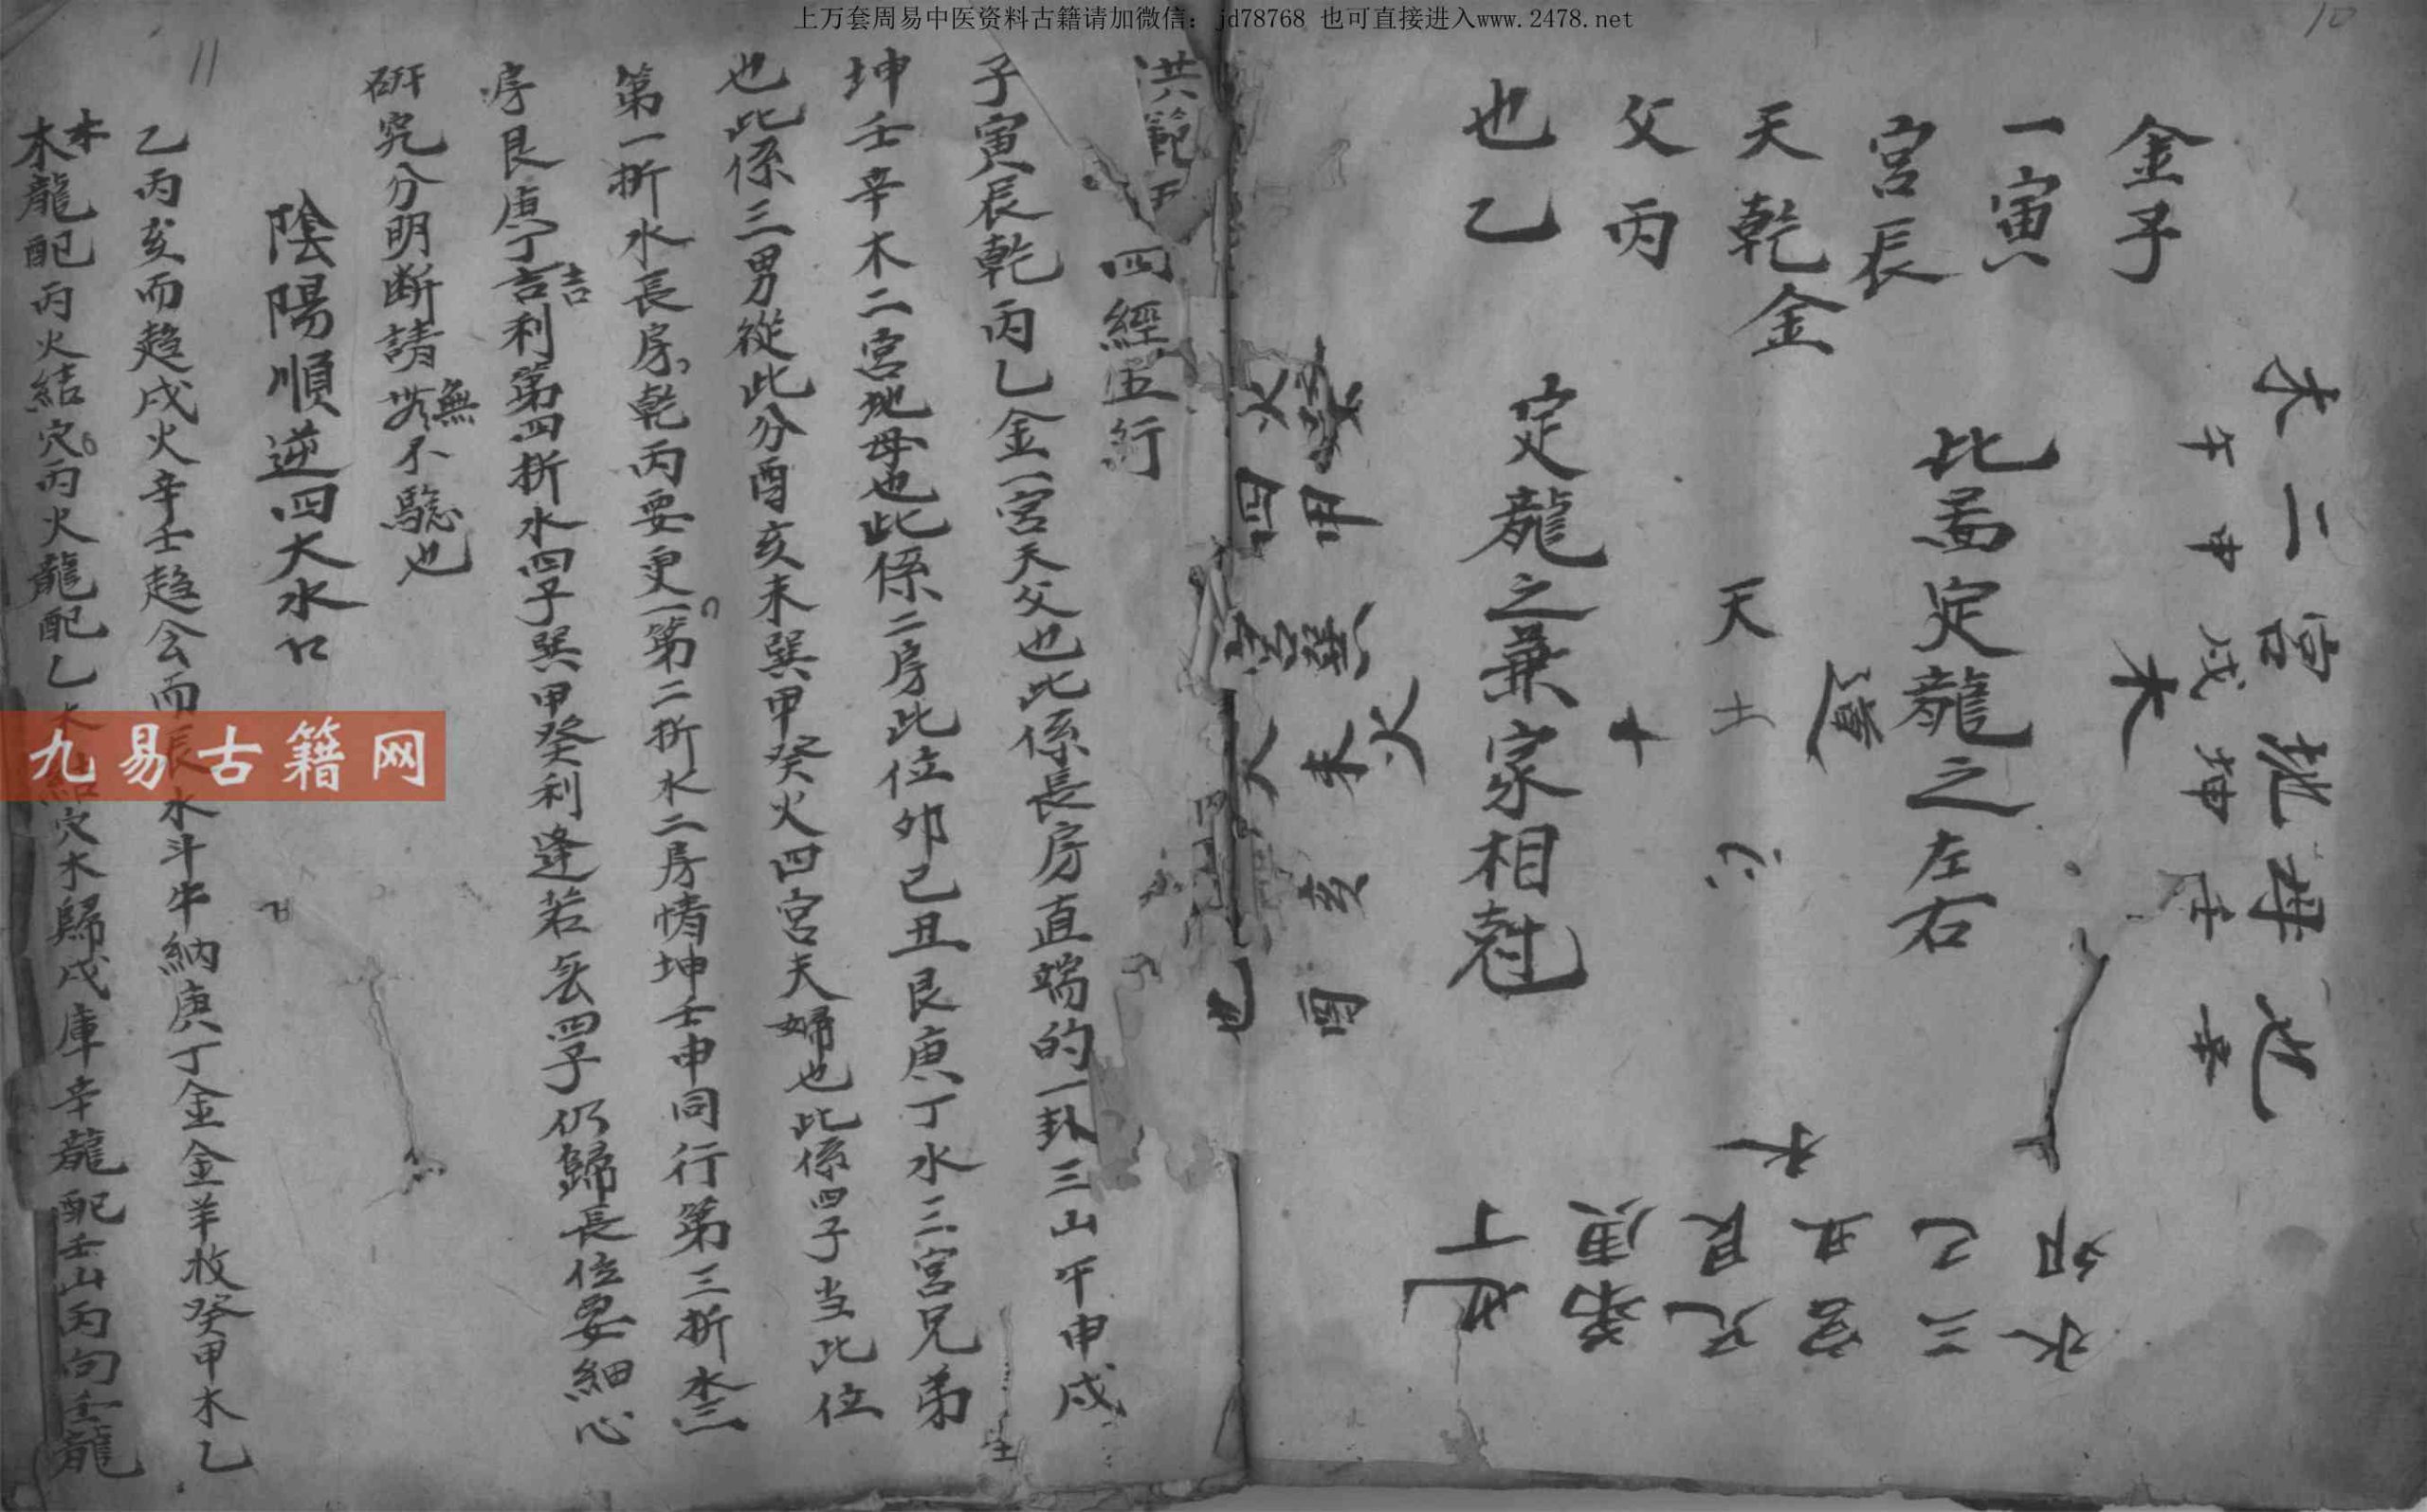 上万套周易中医资料古籍请加微信：jd78768 也可直接进入www.2478.net
10
金子
一寅
宮辰
天乾金
父丙
也乙
木二宮地母也
午申戌坤壬辛
木
水三宮兄弟也
卯巳丑艮庚丁
水
火四宮夫
巽甲癸未亥酉
火
此盖定龍之左右
天
定龍之兼家相尅
11
洪範五
四經五行
子寅辰乾丙乙金一宮天父也此係長房直端的一卦三山午申戌
坤壬辛木二宮地母也此係二房此位卯巳丑艮庚丁水三宮兄弟
也此係三男從此分酉亥未巽甲癸火四宮夫婦也此係四子当此位
第一折水長房乾丙要更一第二折水二房情坤壬申同行第三折水三
房艮庚丁吉利第四折水四子巽甲癸利逢若丢四子仍歸長位要細心
吉
研究分明断請不騐也
無
陰陽順逆四大水口
乙丙亥而趋戌火辛壬趋会而辰水斗牛納庚丁金金羊收癸甲木乙
木龍配丙火結穴丙火龍配乙木結穴木歸戌庫辛龍配壬山丙向壬龍
木
九易古籍网